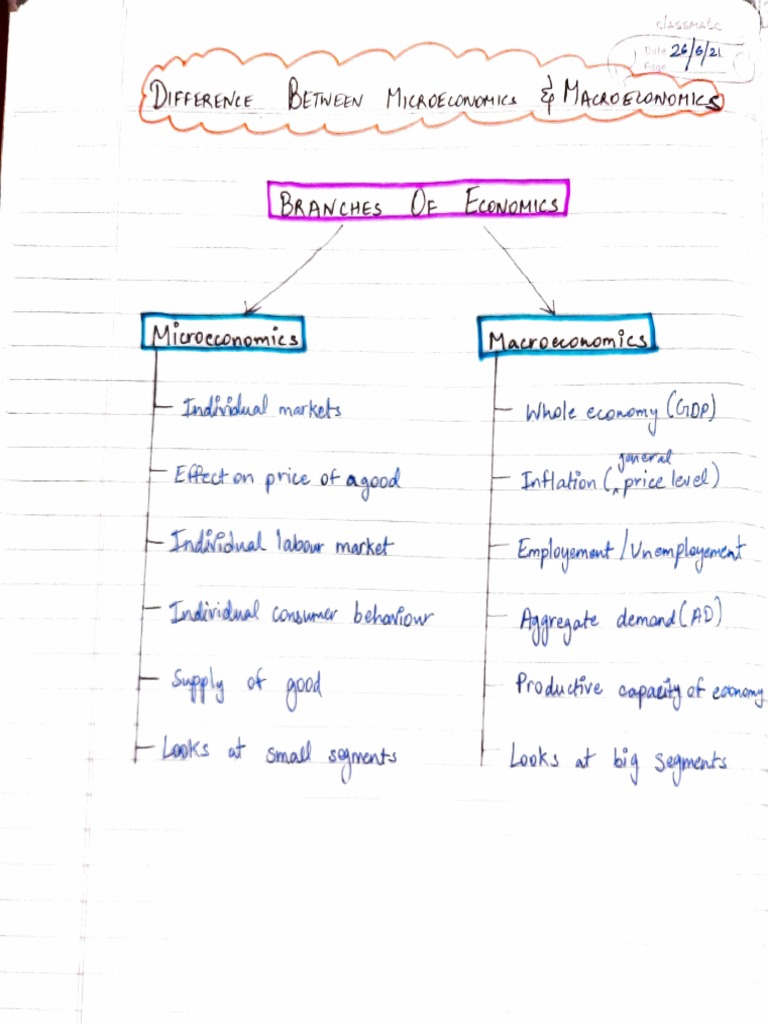 classmate
Date 26/6/21
Page
DIFFERENCE BETWEEN MICROECONOMICS & MACROECONOMICS
BRANCHES OF ECONOMICS
Microeconomics
Macroeconomics
Individual markets
Whole economy (GDP)
Effect on price of a good
general
Inflation (^price level)
Individual labour market
Employement / Unemployement
Individual consumer behaviour
Aggregate demand (AD)
Supply of good
Productive capacity of economy
Looks at small segments
Looks at big segments